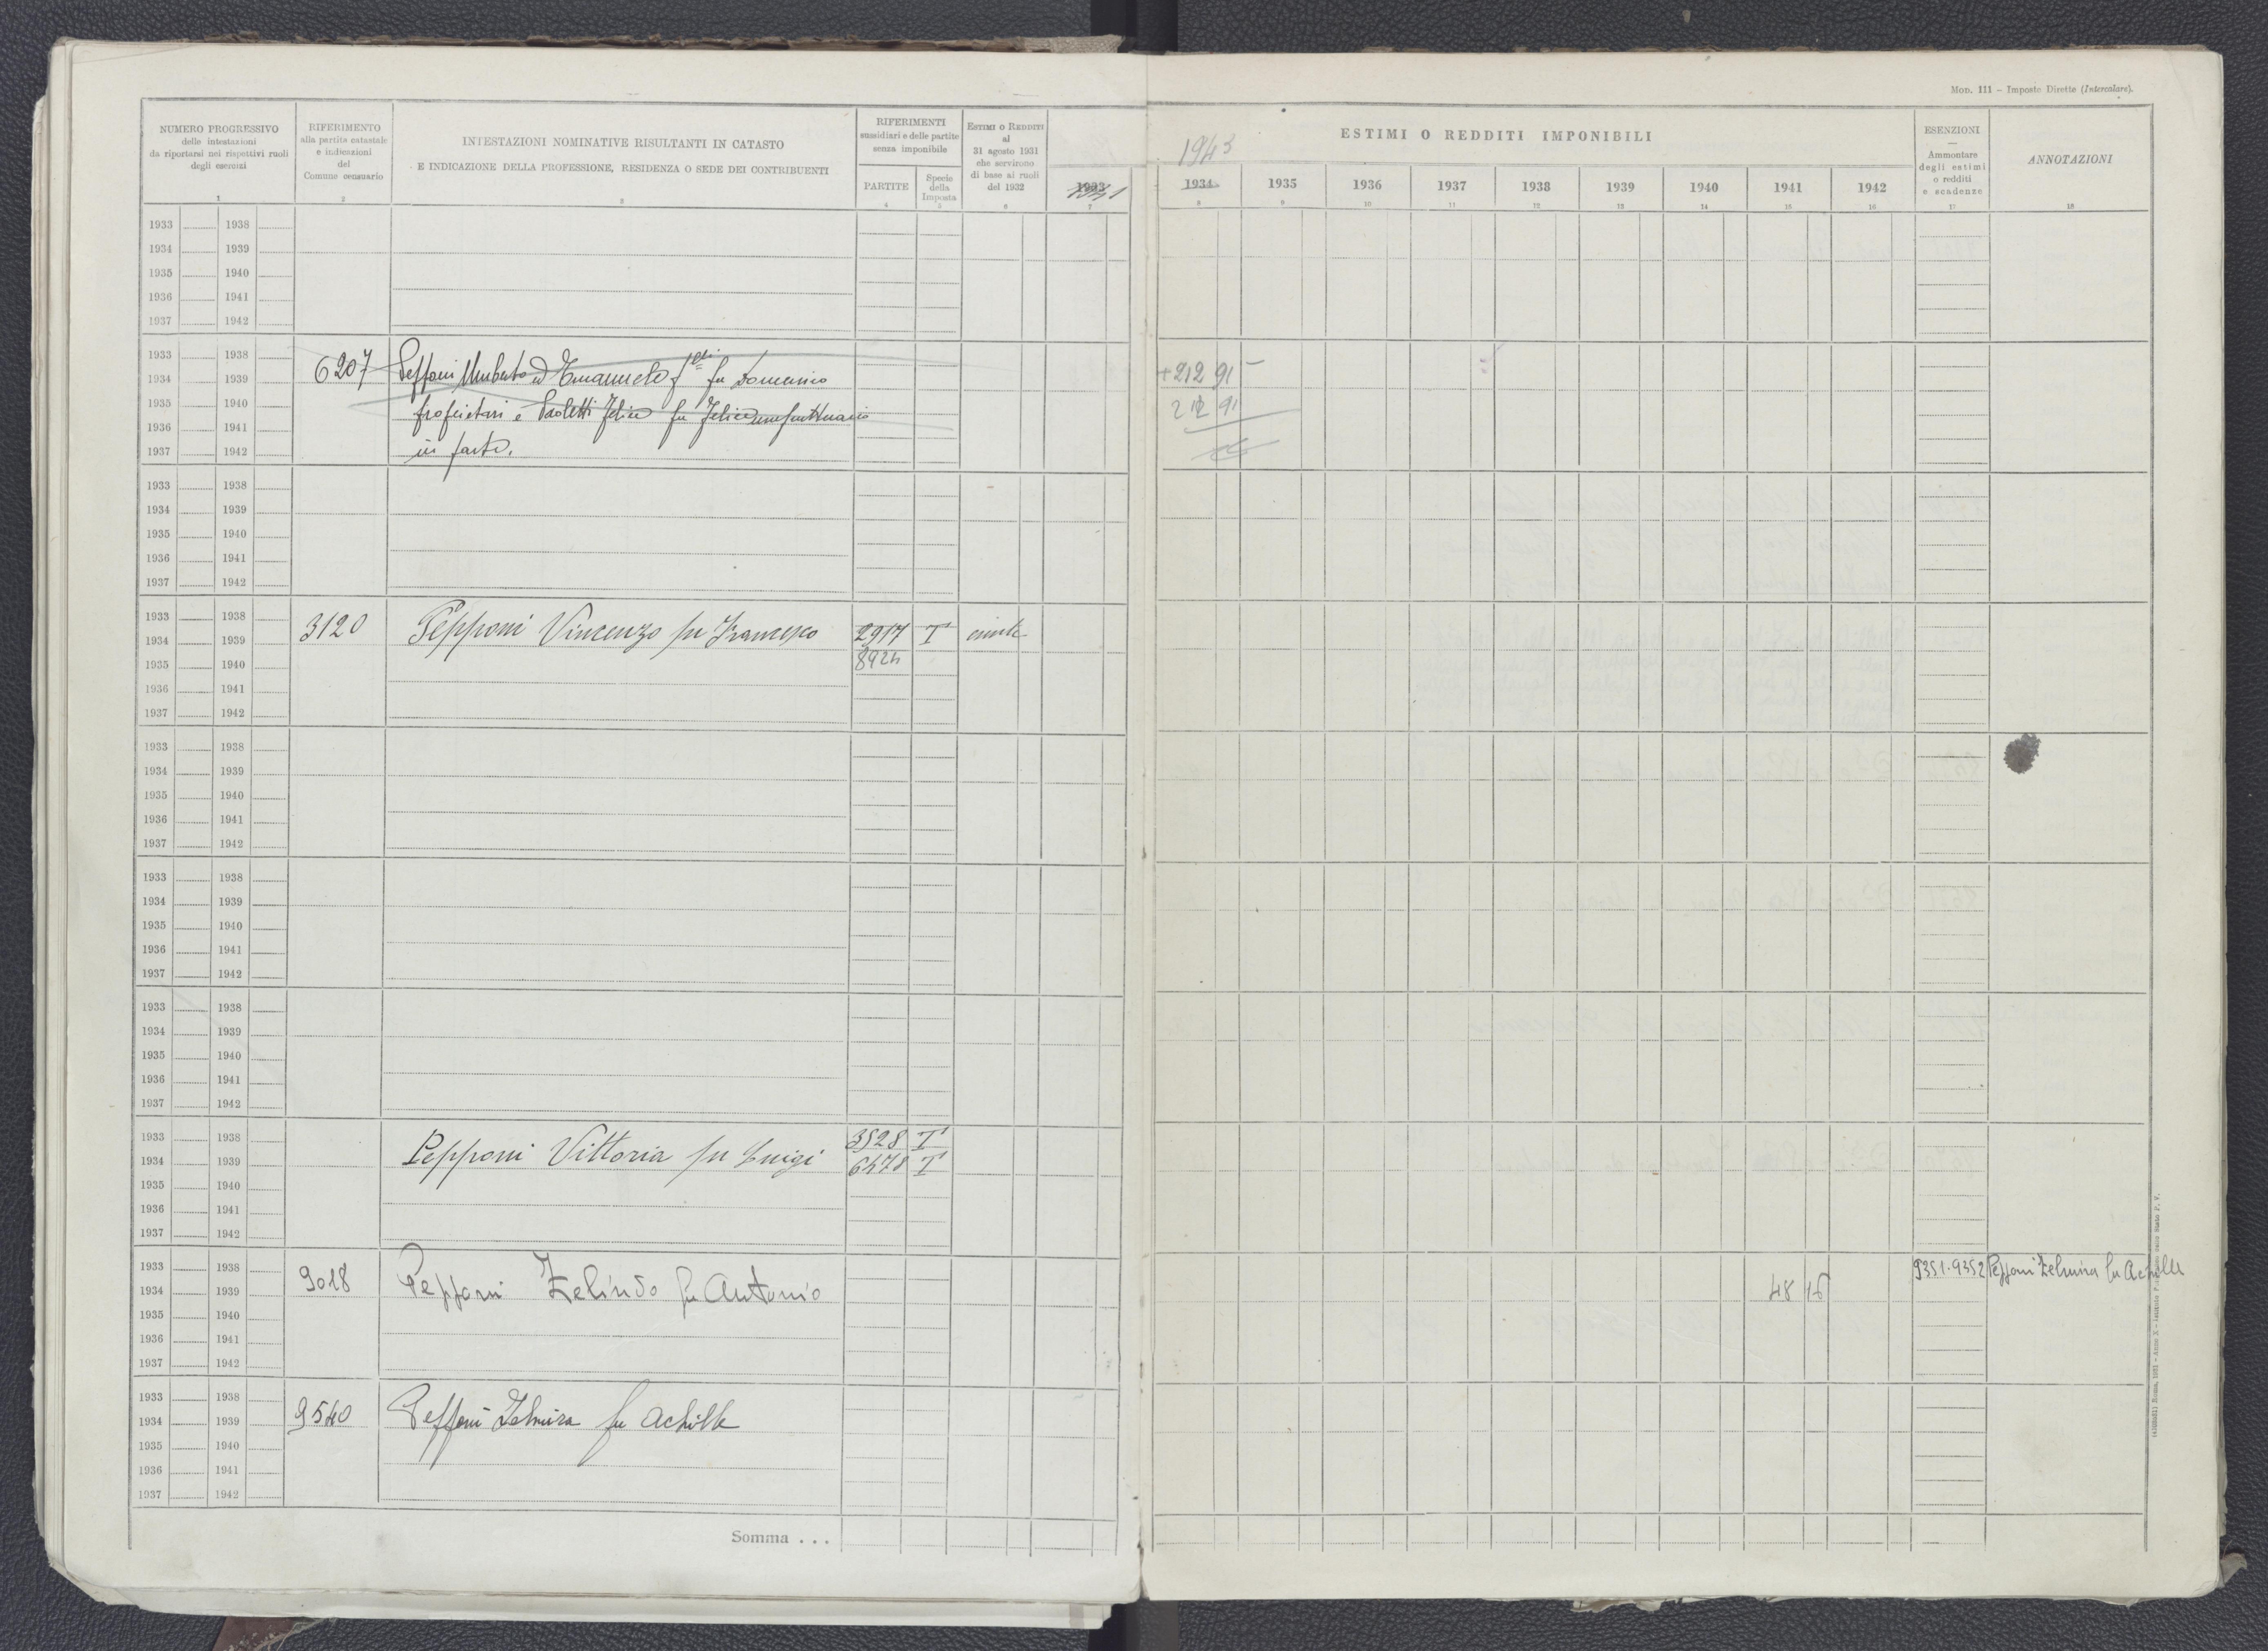 Mod. 111 – Imposte Dirette (Intercalare).
NUMERO PROGRESSIVO
delle intestazioni
da riportarsi nei rispettivi ruoli
degli esercizi
1
RIFERIMENTO
alla partita catastale
e indicazioni
del
Comune censuario
2
INTESTAZIONI NOMINATIVE RISULTANTI IN CATASTO
E INDICAZIONE DELLA PROFESSIONE, RESIDENZA O SEDE DEI CONTRIBUENTI
3
RIFERIMENTI
sussidiari e delle partite
senza imponibile
PARTITE
4
Specie
della
Imposta
5
ESTIMI O REDDITI
al
31 agosto 1931
che servirono
di base ai ruoli
del 1932
6
1933
7
1943
ESTIMI O REDDITI IMPONIBILI
1934 1935 1936 1937 1938 1939 1940 1941 1942
8 9 10 11 12 13 14 15 16
ESENZIONI
—
Ammontare
degli estimi
o redditi
e scadenze
17
ANNOTAZIONI
18
1933 1938
1934 1939
1935 1940
1936 1941
1937 1942
1933 1938
1934 1939
1935 1940
1936 1941
1937 1942
6207
Pepponi Umberto ed Emanuele fu Domenico
proprietari e Paoletti Felice fu Felice usufruttuario
in parte.
+212 91
212 91
1933 1938
1934 1939
1935 1940
1936 1941
1937 1942
1933 1938
1934 1939
1935 1940
1936 1941
1937 1942
3120 Pepponi Vincenzo fu Francesco 2917 T
8924
1933 1938
1934 1939
1935 1940
1936 1941
1937 1942
1933 1938
1934 1939
1935 1940
1936 1941
1937 1942
1933 1938
1934 1939
1935 1940
1936 1941
1937 1942
1933 1938
1934 1939
1935 1940
1936 1941
1937 1942
Pepponi Vittoria fu Luigi
3528 T
6478 T
1933 1938
1934 1939
1935 1940
1936 1941
1937 1942
9018 Pepponi Zelindo fu Antonio
48 16
9351-9352 Pepponi Zelmira fu Achille
1933 1938
1934 1939
1935 1940
1936 1941
1937 1942
9540 Pepponi Zelmira fu Achille
Somma . . .